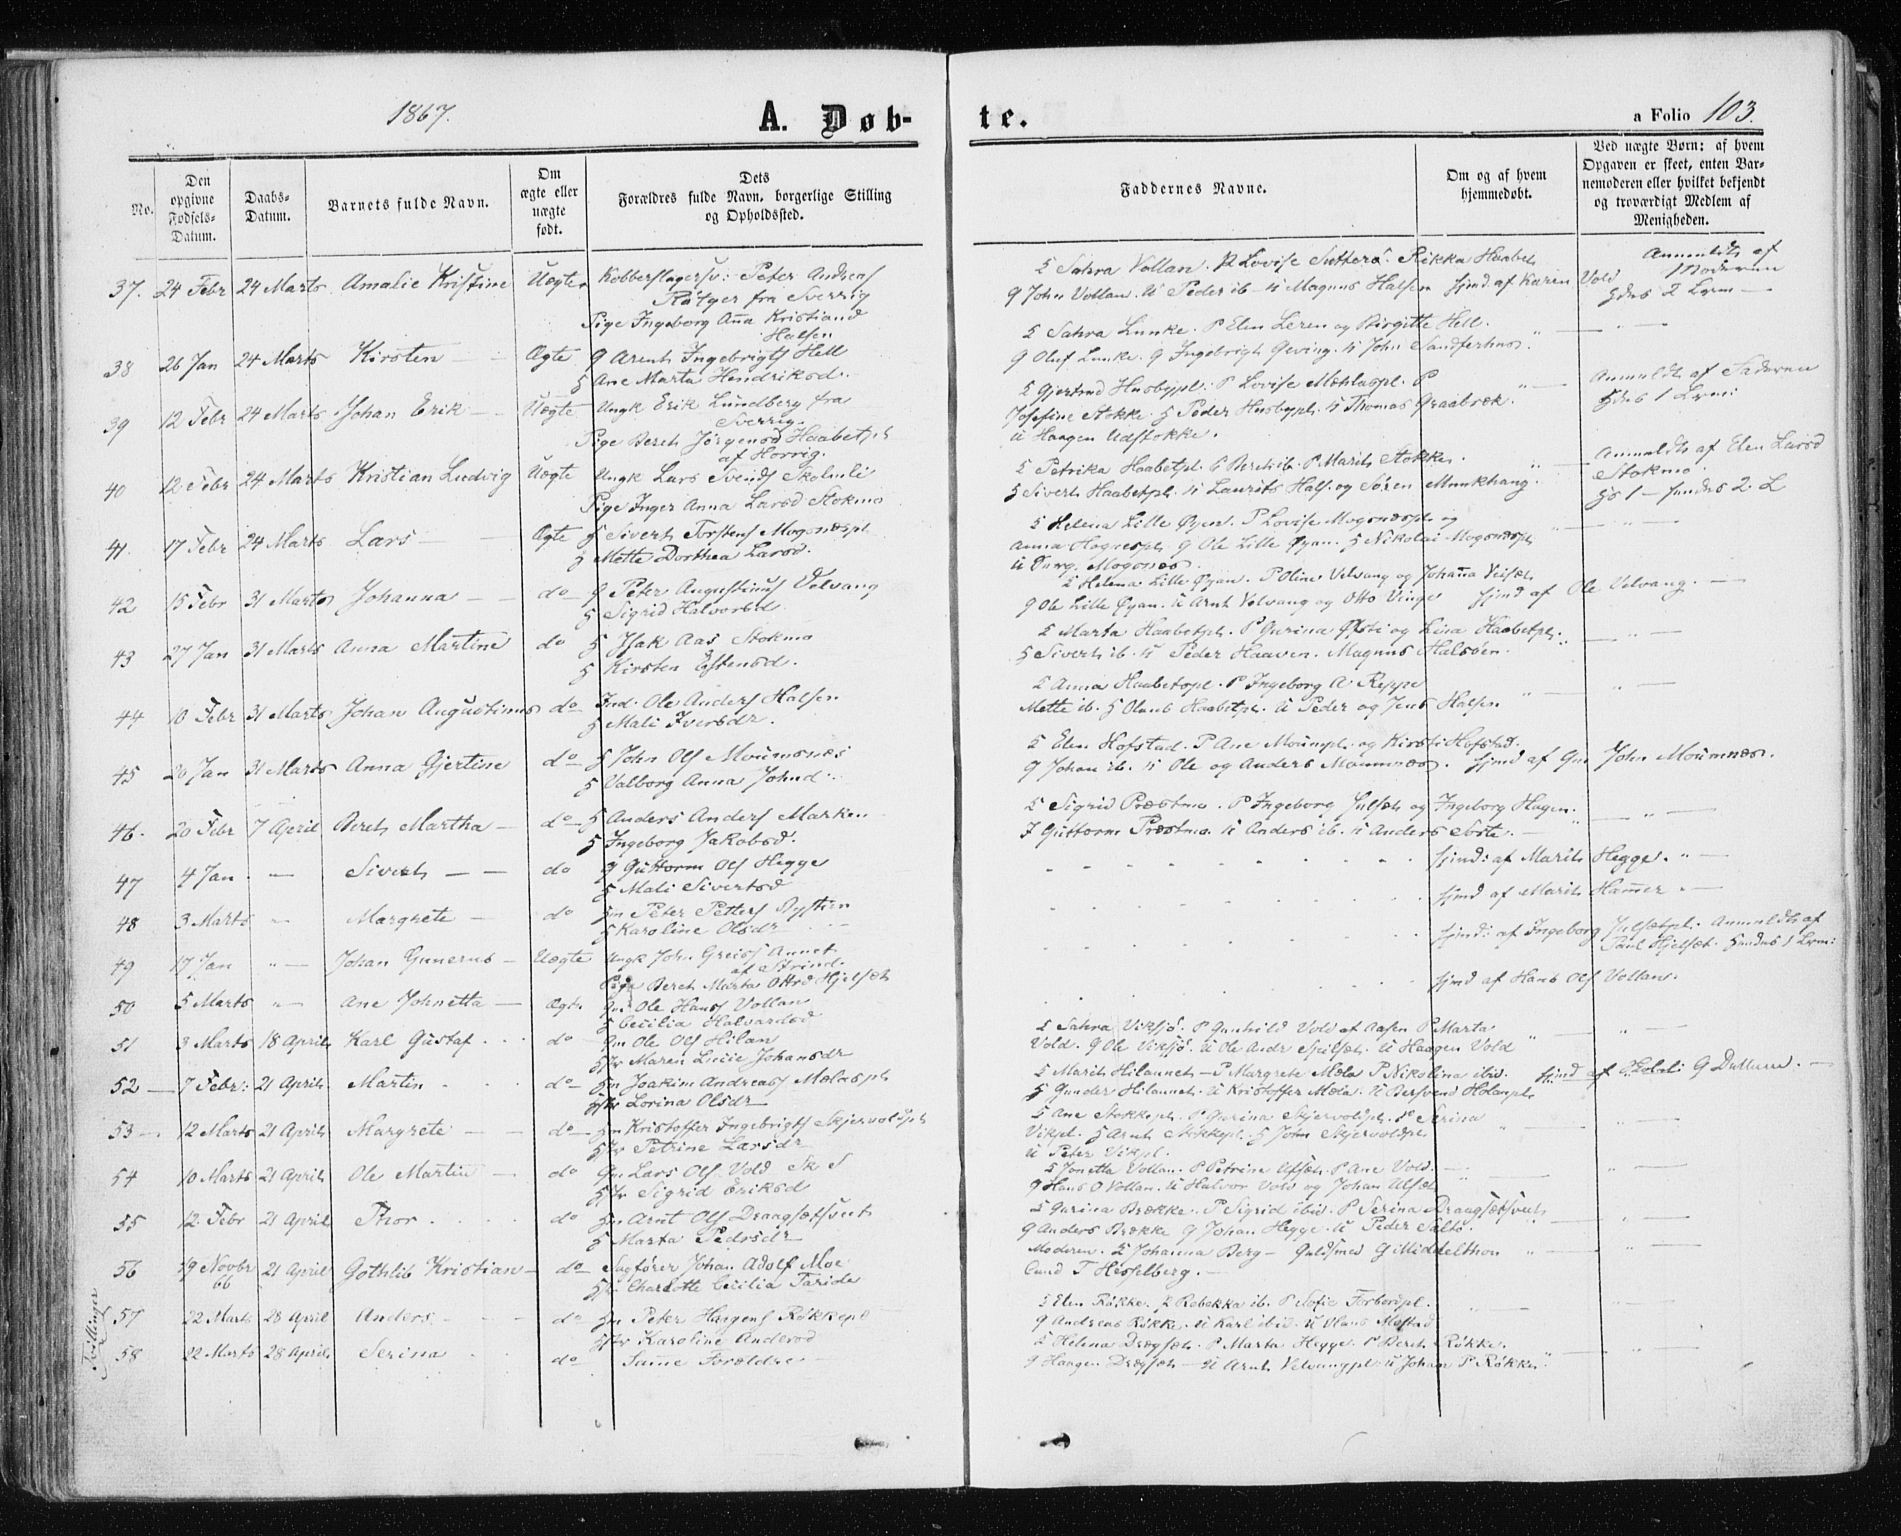 1867.
A. Døb-
te.
a Folio 103.
No.
Den opgivne Fødsels-Datum.
Daabs-Datum.
Barnets fulde Navn.
Om ægte eller uægte født.
Dets Forældres fulde Navn, borgerlige Stilling og Opholdssted.
Faddernes Navne.
Om og af hvem hjemmedøbt.
Ved uægte Børn: af hvem Opgaven er skeet, enten Barnemoderen eller hvilket bekjendt og troværdigt Medlem af Menigheden.
37. 24 Febr 24 Marts Amalie Kristine Uægte Kobberslagersv: Peter Andreas
Rötger fra Sverrig
Pige Ingeborg Anna Kristiand
Halsen
K Sahra Vollan. P Lovise Rikka Haabet
G John Vollan. U Peder ib - U Magnus Halsen hjmd. af Karen Vold
Anmeldt af
Moderen
38 26 Jan 24 Marts Kirsten Ægte G Arent Ingebrigts Hell
H Ane Marta Hendriksd.
K Sahra Lunke. P Elen Leren og Birgitte Hell.
G Oluf Lunke. G Ingebrigt Geving. U John Sandferhus.
39 12 Febr 24 Marts Johan Erik Uægte Ungk Erik Lundberg fra
Sverrig.
Pige Beret Jørgensd Haabetpl
af Horrig.
K Gjertrud Husbypl. P Lovise Mæhlaspl. P
Josefine Stokke. H Peder Husbypl. U Thomas Graabræk.
U Haagen Udstokke.
Anmeldt af Faderen
40 12 Febr 24 Marts Kristian Ludvig Uægte Ungk Lars Svends Skolmli
Pige Inger Anna Larsd Stokmo
K Petrika Haabetpl. P Beret ib. P Marit Stokke.
H Sivert Haabetpl. U Laurits Hals. og Søren Munkhaug.
Anmeldt af Elen Larsd
Stokmo.
41. 17 Febr 24 Marts Lars Ægte H Sivert Torstens Mogsnæspl
H Mette Dorthea Larsd.
K Helena Lille Øyan. P Lovise Mogsnæspl og
Anna Hognespl. G Ole Lille Øyan. H Nikolai Mogsnæspl
42 15 Febr 31 Marts Johanna do G Peter Augustinus Velvang
H Sigrid Halvorsd
K Helena Lille Øyan. P Oline Velvang og Johanna
G Ole Lille Øyan. U Arnt Velvang og Otto Vinge hjmd af Ole Velvang.
43 27 Jan 31 Marts Anna Martine do H Isak Aas Stokmo
H Kirsten Estensd.
K Marta Haabetpl. P Gurina Østi og Lina Haabetpl.
H Sivert ib. U Peder Haaven. Magnus Halsen.
44 10 Febr 31 Marts Johan Augustinus do Ind. Ole Anders Halsen
H Mali Iversdr.
K Anna Haabetpl. P Ingeborg A Reppe
Mette ib. H Olaus Haabetpl. U Peder og Jens Halsen
45 20 Jan 31 Marts Anna Gjertine do H John Ols Moumsnæs
H Valborg Anna Johnd.
K Elen Hofstad. P Ane Moumpl. og Kirsti Hofstad.
G Johan ib. U Ole og Anders Moumnæs. hjmd af Gm John Moumnæs.
46. 20 Febr 7 April Beret Martha do H Anders Anders Marken
H Ingeborg Jakobsd.
K Sigrid Præstmo. P Ingeborg Julset og Ingeborg Hagen.
F Guttorm Præstmo. U Anders ib. U Anders Soste.
47 4 Jan Sivert do G Guttorm Ols Hegge
H Mali Sivertsd
hjmd: af Marit Hegge.
48 3 Marts Margrete do Hm Peter Petters Bystien
H Karoline Olsdr
hjmd af Marit Hamer
49 17 Jan Johan Gunerus Uægte Ungk John Greiss Annet
af Strind.
Pige Beret Marta Ottesd Hjelset
hjmd: af Ingeborg Julsetpl. Anmeldt af
Paul Hjelset.
50 5 Marts Ane Johnetta Ægte Gm Ole Hans Vollan
H Cecilia Halvardsd
hjmd af Hans Ols Vollan.
51 3 Marts 18 April Karl Gustaf do Gm Ole Ols Hilan
H Maren Lucie Johansdr
K Sahra Viksjø. P Gunhild Vold af Aasen P Marta
Vold. G Ole Viksjø. U Ole Andr Hjelset. U Haagen Vold
52 7 Febr: 21 April Martin do Hm Joakim Andreas Mælaspl
Lorina Olsdr
K Marit Hilannet - P Margrete Mæla P Nikolina ibid.
H Gunder Hilannet. U Kristoffer Mæla. U Bersvend Holanpl hjmd af G Duttum.
53 12 Marts 21 April Margrete do Hm Kristoffer Ingebrigts Skjervoldpl
Petrine Larsdr
K Ane Stokkepl. P Gurina Skjervoldpl. P Serina
Vikpl. H Arnt Stokkepl. H John Skjervoldpl
U Peter Vikpl.
54 10 Marts 21 April Ole Martin do Gm Lars Ols Vold
Sigrid Eriksd
K Jonetta Vollan. P Petrine Ulset. P Ane Vold.
G Hans O Vollan. U Halvor Vold og Johan Ulset
55 12 Febr 21 April Thor do Hm Arnt Ols Draagsetsveet
H Marta Pedrsdr
K Gurina Brække. P Sigrid ibid. P Serina Draagsetsveet
G Anders Brække G Johan Hegge. U Peder Salto.
56 19 Novbr 66 21 April Gothlib Kristian do Sagfører Johan Adolf Moe
Charlotte Cecilia Taride
Moderen. K Johanna Berg - Guldsmed G Middelthon
Cand T Hesselberg.
Tvillinger
57 22 Marts 28 April Anders do Hm Peter Haagens Røkkepl
Karoline Andersd
K Elen Røkke. P Rebekka ib. P Sofie Forbordpl.
G Andreas Røkke. U Karl ibid. U Olaus Mosted
58 22 Marts 28 April Serina do Samme Forældre
K Helena Drægset. P Marta Hegge. P Beret Røkke.
G Haagen Drægset - U Arnt Velvangpl. U Johan P Røkke.